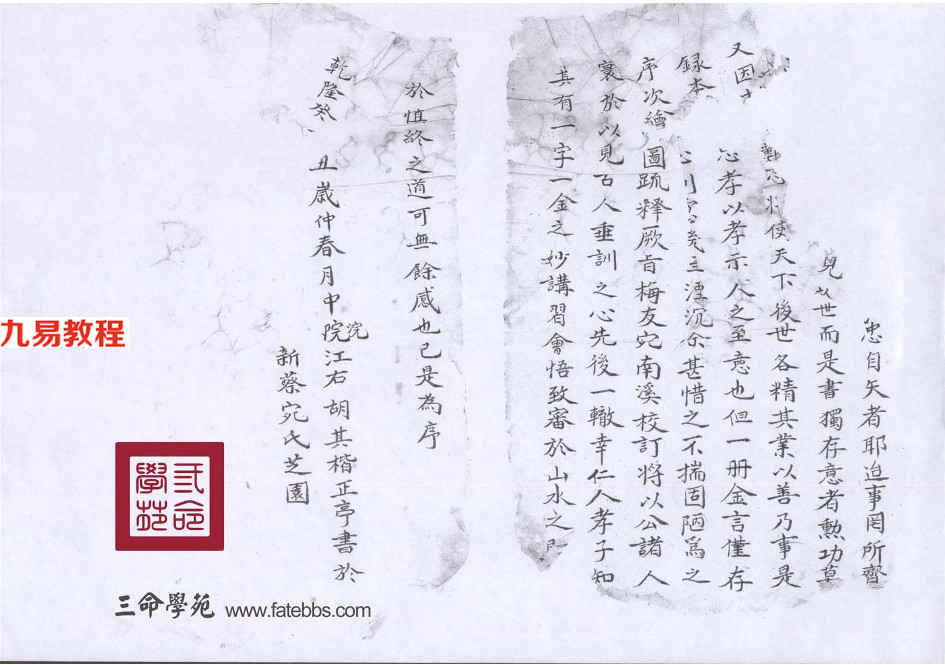 忠自矢者耶迨事罔所齎
世而是書獨存意者勲功莫
將使天下後世各精其業以善乃事是
又因
心孝以孝示人之至意也但一册金言僅存
録本
湮沉余甚惜之不揣固陋為之
序次繪圖疏釋厥旨梅友宛南溪校訂將以公諸人
寰於以見古人垂訓之心先後一轍幸仁人孝子知
其有一字一金之妙講習會悟致審於山水之
於慎終之道可無餘感也已是為序
乾隆癸丑歲仲春月中浣江右胡其楷正亭書於
新蔡宛氏芝園
九易教程
三命學苑
三命學苑 www.fatebbs.com